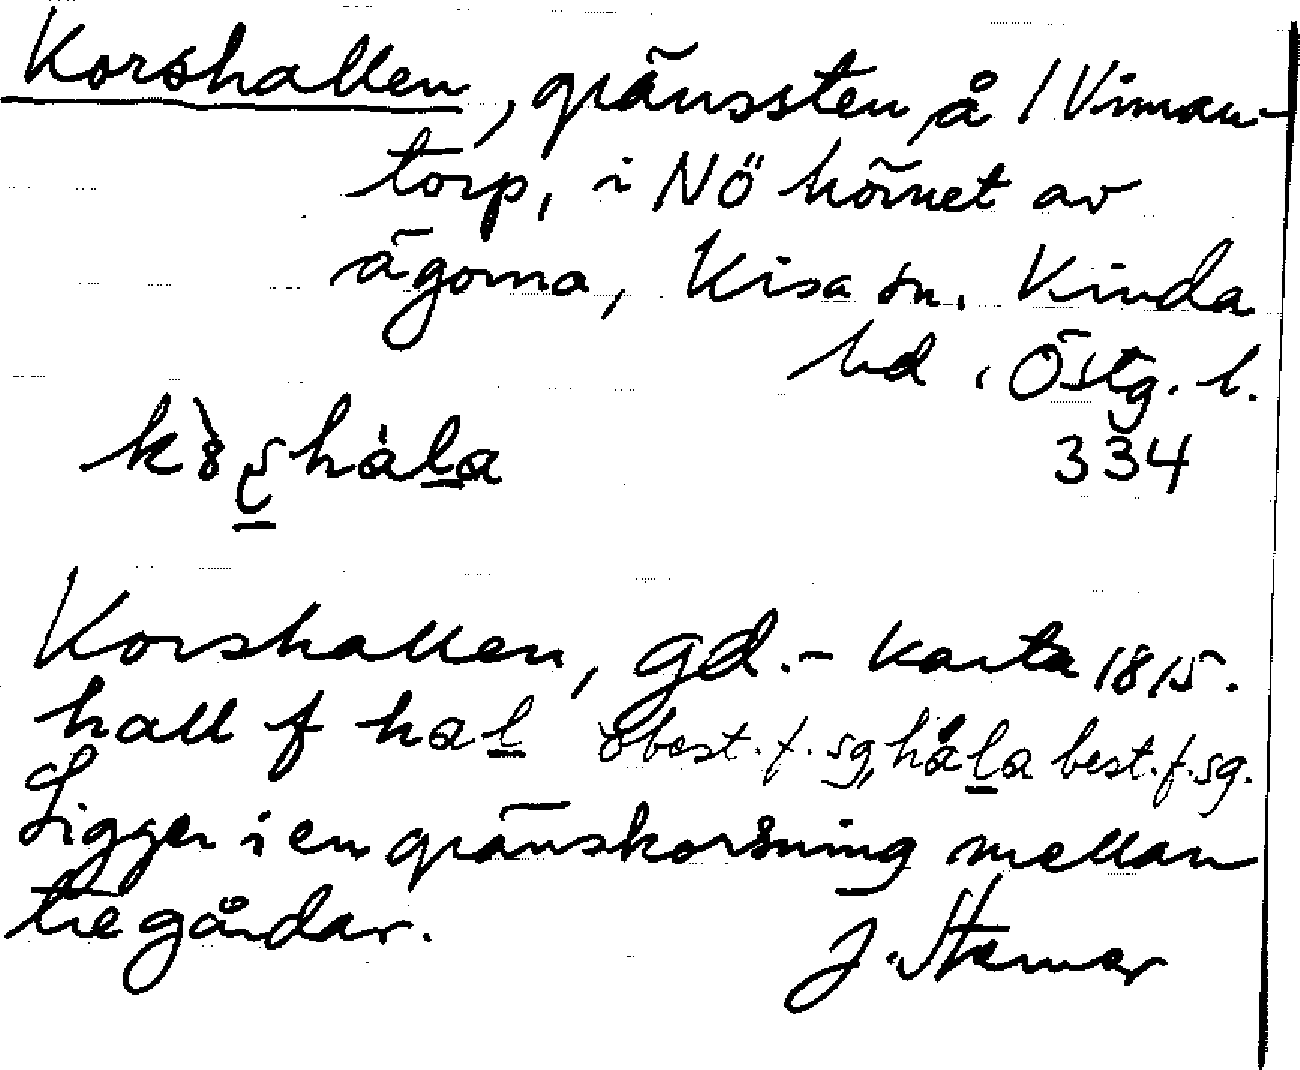 Korshallen, gränssten å 1 Viman-
torp, i NÖ hörnet av
ägorna, Kisa sn. Kinda
hd, Östg. l.
334
Korshallen, gd. - Karta 1815.
hall f hal obest. f. sg, håla best. f. sg.
Ligger i en gränskorsning mellan
tre gårdar.